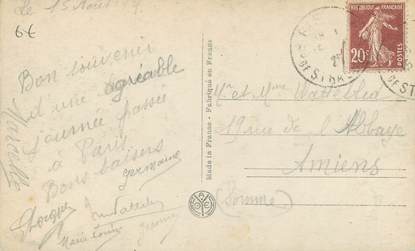 Le 15 Août
6€
Bon souvenir
d'une agréable
journée passée
à Paris
Bons baisers
Marcelle
Germaine
Georges
Marie Louise
Made in France - Fabriqué en France
REPUBLIQUE FRANÇAISE
20c
POSTES
Mr et Mme
19 rue de l'Abbaye
Amiens
(Somme)